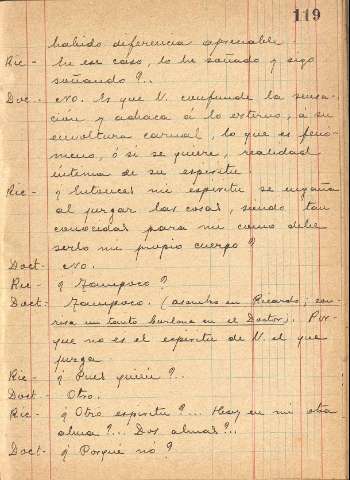 119
habido diferencia apreciable.
Ric - En ese caso, lo he soñado y sigo
soñando?..
Doc - No. Es que V. confunde la sensa-
ción y achaca á lo externo, a su
envoltura carnal, lo que es fenó-
meno, ó si se quiere, realidad
íntima de su espíritu.
Ric - ¿Entonces mi espíritu se engaña
al juzgar las cosas, siendo tan
conocidas para mí como debe
serlo mi propio cuerpo?
Doct - No.
Ric - ¿Tampoco?
Doct: Tampoco. (asombro en Ricardo; son-
risa un tanto burlona en el Doctor). Por-
que no es el espíritu de V. el que
juzga.
Ric - ¿Pues quién?..
Doct - Otro.
Ric - ¿Otro espíritu?... Hay en mí otra
alma?... Dos almas?..
Doct - ¿Porqué nó?